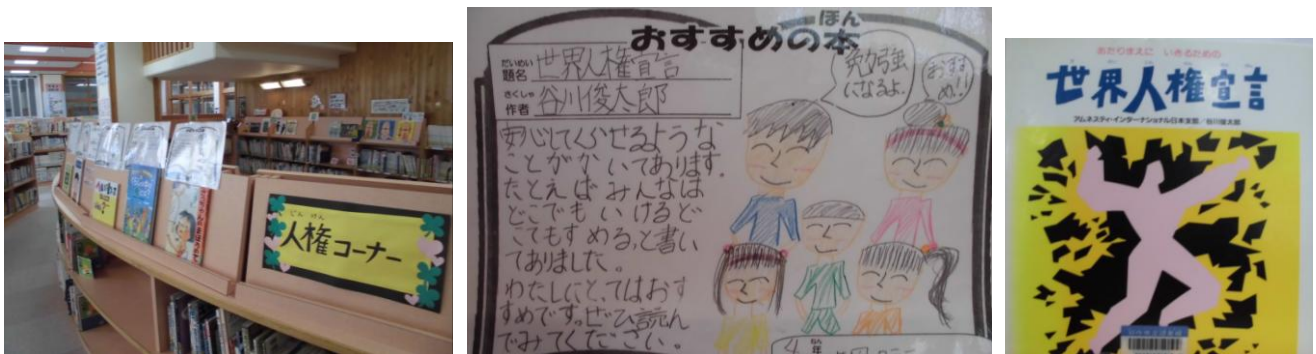 じん けん
人権コーナー
ほん
おすすめの本
だいめい
題名 世界人権宣言
さくしゃ
作者 谷川俊太郎
安心してくらせるような
ことがかいてあります。
たとえばみんなは
どこでもいけるど
こでもすめる,と書い
てありました。
わたしにとってはおす
すめです。ぜひ読ん
でみてください。
勉強
になるよ。
おすす
め!!
4年
あたりまえに いきるための
世界人権宣言
アムネスティ・インターナショナル日本支部/谷川俊太郎